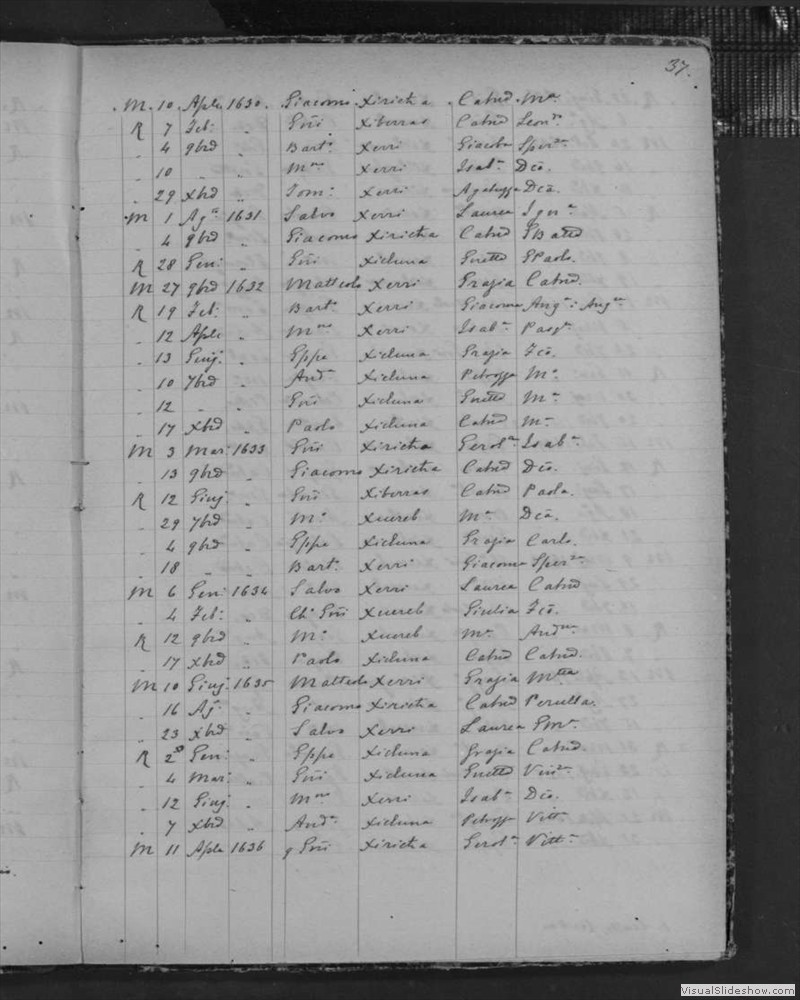 37.
M. 10 Aple 1630. Giacomo Xiricha Catnd Ma
R 7 Feb: „ Gñi Xiberras Catnd Leonra
„ 4 9brd „ Barto Xerri Giacoba Sperza
„ 10 „ „ Mno Xerri Isaba Dcã.
„ 29 Xbrd „ Tom: Xerri Dcã.
M 1 Aga 1631 Salvo Xerri Laurea Igna
„ 4 9brd „ Giacomo Xiricha Catnd GBatta
R 28 Gen: „ Gñi Xicluna GPaolo.
M 27 9brd 1632 Matteolo Xerri Grazia Catnd.
R 19 Feb: „ Barto Xerri Giacoma Anga: Auga
„ 12 Aple „ Mno Xerri Isaba Pasqa
„ 13 Giuj. „ Geppe Xicluna Grazia Fcõ.
„ 10 7brd „ Anda Xicluna Petrozza Ma
„ 12 „ „ Gñi Xicluna Ma
„ 17 Xbrd „ Paolo Xicluna Catnd Ma
M 3 Mar: 1633 Gñi Xiricha Gerola Isaba
„ 13 9brd „ Giacomo Xiricha Catnd Dcõ.
R 12 Giuj. „ Gñi Xiberras Catnd Paola.
„ 29 7brd „ Mo Xuereb Ma Dcã.
„ 4 9brd „ Geppe Xicluna Grazia Carlo.
„ 18 „ „ Barto Xerri Giacoma Sperza
M 6 Gen: 1634 Salvo Xerri Laurea Catnd
„ 4 Feb: „ Cho Gñi Xuereb Giulia Fcõ.
R 12 9brd „ Mo Xuereb Ma
„ 17 Xbrd „ Paolo Xicluna Catnd Catnd.
M 10 Giuj. 1635 Matteolo Xerri Grazia Mttea
„ 16 Aj. „ Giacomo Xiricha Catnd Perulla.
„ 23 Xbrd „ Salvo Xerri Laurea GMa
R Gen: „ Geppe Xicluna Grazia Catnd
„ 4 Mar: „ Gñi Xicluna Vinza
„ 12 Giuj. „ Mno Xerri Isaba Dcõ.
„ 7 Xbrd „ Anda Xicluna Petrozza Vitta
M 11 Aple 1636 q Gñi Xiricha Gerola Vitta
VisualSlideshow.com